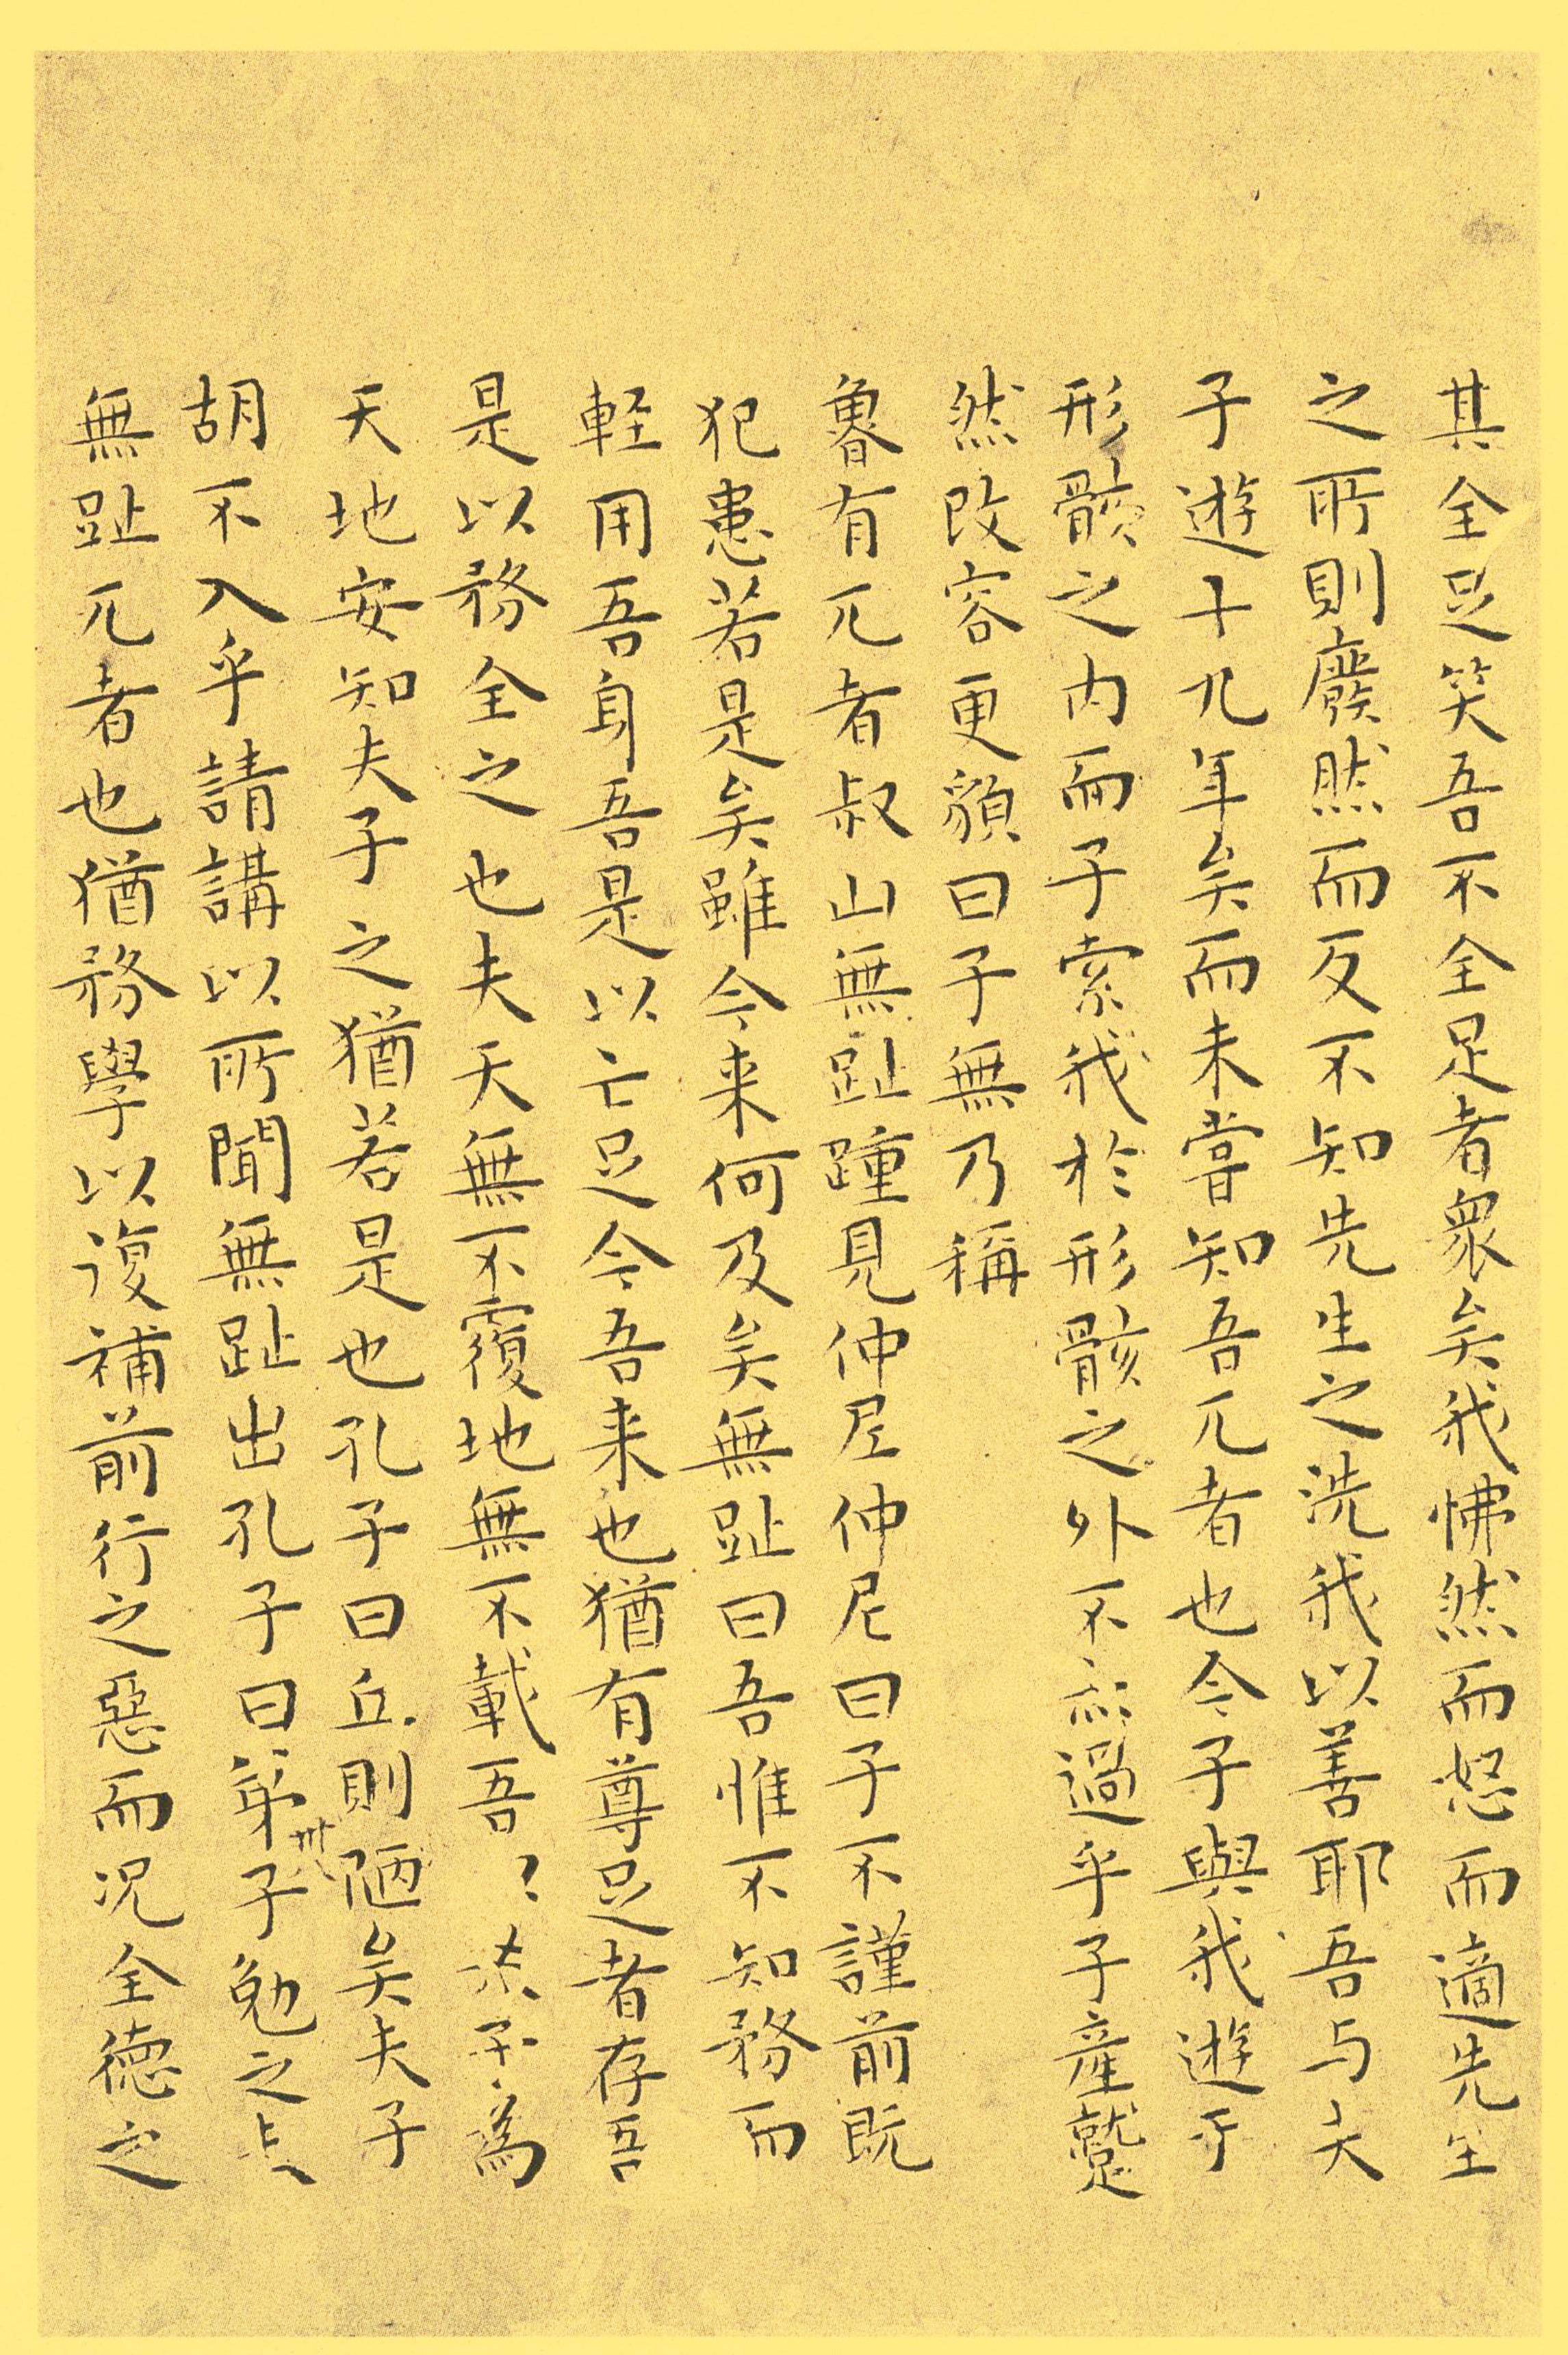 其全足笑吾不全足者衆矣我怫然而怒而適先生
之所則廢然而反不知先生之洗我以善耶吾与夫
子遊十九年矣而未甞知吾兀者也今子與我遊乎
形骸之内而子索我於形骸之外不亦過乎子産蹵
然改容更貌曰子無乃稱
魯有兀者叔山無趾踵見仲尼仲尼曰子不謹前既
犯患若是矣雖今来何及矣無趾曰吾惟不知務而
軽用吾身吾是以亡足今吾来也猶有尊足者存吾
是以務全之也夫天無不覆地無不載吾〻以夫子為
天地安知夫子之猶若是也孔子曰丘則陋矣夫子
胡不入乎請講以所聞無趾出孔子曰弟子勉之夫
無趾兀者也猶務學以復補前行之惡而况全德之